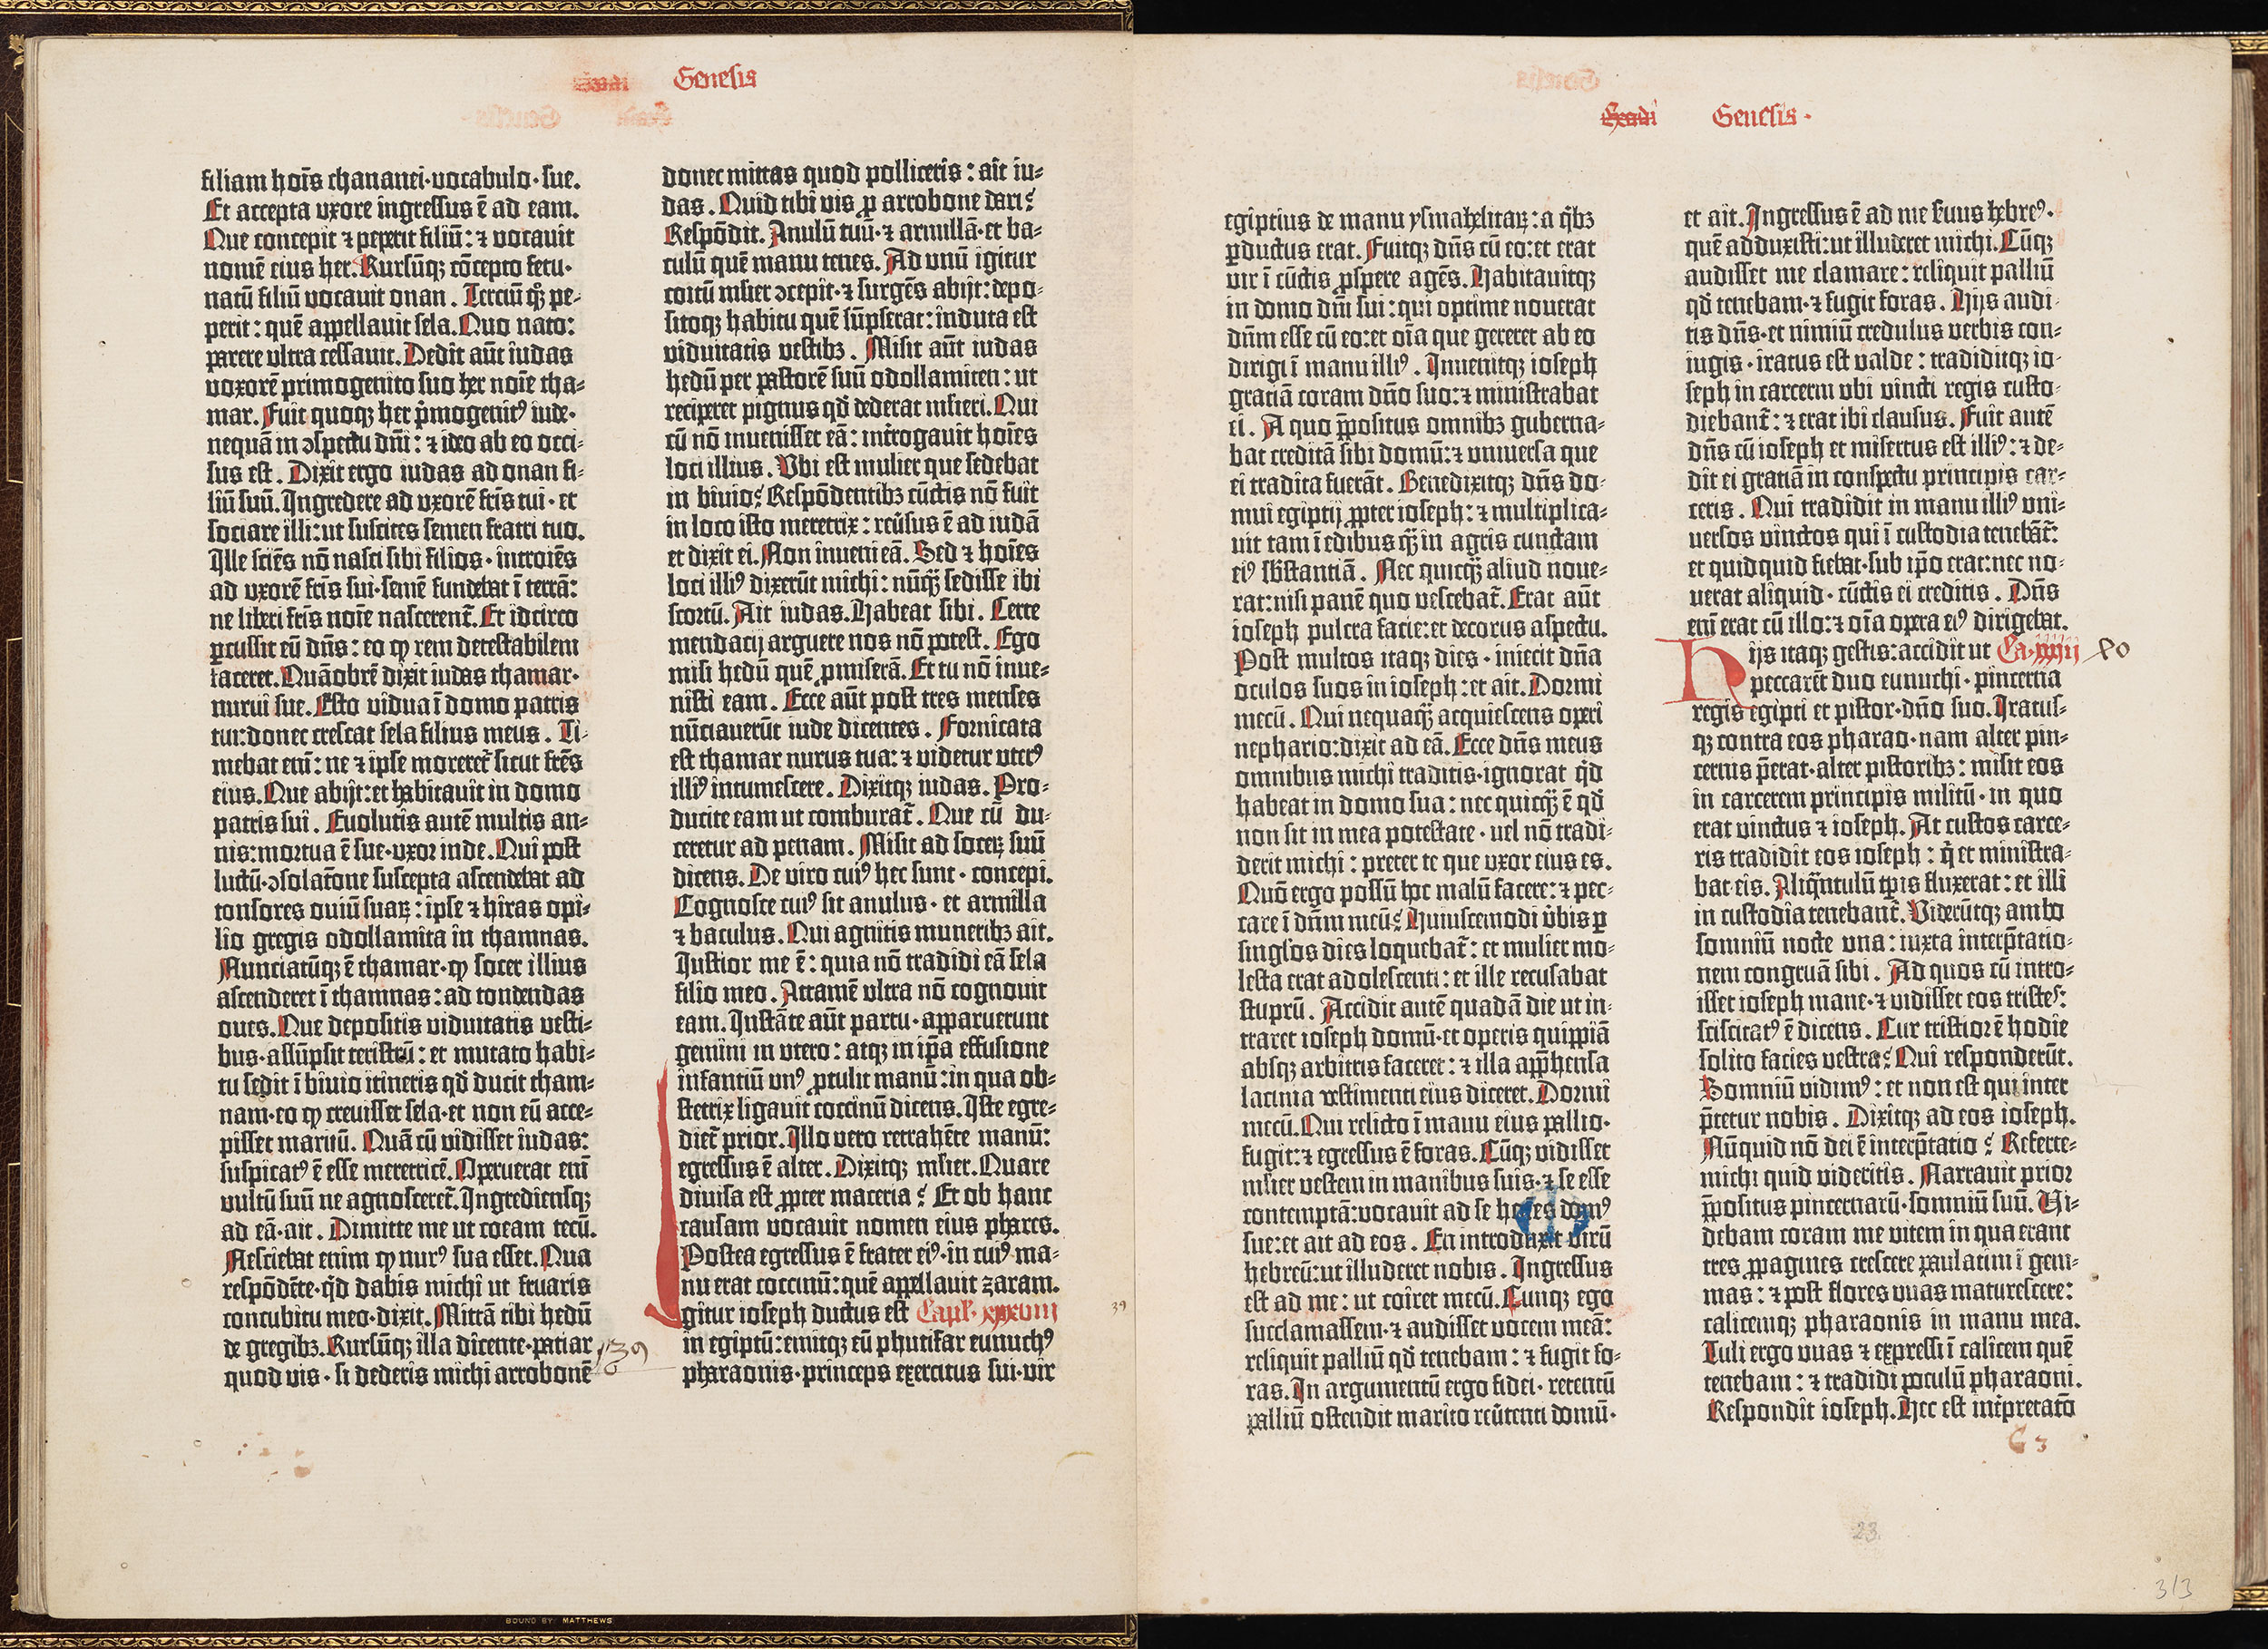 Exodi Genesis
filiam hoīs chananei·vocabulo·sue.
Et accepta vxore ingressus ē ad eam.
Que concepit ⁊ peperit filiū: ⁊ vocauit
nomē eius her. Rursūqȝ cōcepto fetu·
natū filiū vocauit onan. Terciū qꝫ pe-
perit: quē appellauit sela. Quo nato:
parere vltra cessauit. Dedit aūt iudas
voxorē primogenito suo her noīe tha-
mar. Fuit quoqȝ her p̄mogenitꝰ iude·
nequā in ↄspectu dn̄i: ⁊ ideo ab eo occi-
sus est. Dixit ergo iudas ad onan fi-
liū suū. Ingredere ad vxorē fr̄is tui· et
sociare illi: ut suscites semen fratri tuo.
Ille sciēs nō nasci sibi filios· introiēs
ad vxorē fr̄is sui·semē fundebat ī terrā:
ne liberi fr̄is noīe nascerent̄. Et idcirco
ꝑcussit eū dn̄s: eo ꝙ rem detestabilem
faceret. Quāobrē dixit iudas thamar·
nurui sue. Esto vidua ī domo patris
tui:donec crescat sela filius meus. Ti-
mebat enī: ne ⁊ ipse moreret̄ sicut fr̄es
eius. Que abijt: et habitauit in domo
patris sui. Euolutis autē multis an-
nis:mortua ē sue·vxor iude. Qui post
luctū·ↄsolatōne suscepta ascendebat ad
tonsores ouiū suaꝝ: ipse ⁊ hiras opi-
lio gregis odollamita in thamnas.
Nunciatūqȝ ē thamar·ꝙ socer illius
ascenderet ī thamnas: ad tondendas
oues. Que depositis viduitatis vesti-
bus·assūpsit teristrū: et mutato habi-
tu sedit ī biuio itineris qd̄ ducit tham-
nam·eo ꝙ creuisset sela·et non eū acce-
pisset maritū. Quā cū vidisset iudas:
suspicatꝰ ē esse meretricē. Operuerat enī
vultū suū ne agnosceret̄. Ingrediensqȝ
ad eā·ait. Dimitte me ut coeam tecū.
Nesciebat enim ꝙ nurꝰ sua esset. Qua
respōdēte·qd̄ dabis michi ut fruaris
concubitu meo·dixit. Mittā tibi hedū
de gregibȝ. Rursūqȝ illa dicente·patiar
quod vis· si dederis michi arrobonē
39
donec mittas quod polliceris: ait iu-
das. Quid tibi vis ꝓ arrobone dari?
Respōdit. Anulū tuū·⁊ armillā·et ba-
culū quē manu tenes. Ad vnū igitur
coitū ml̄ier ↄcepit·⁊ surgēs abijt: depo-
sitoqȝ habitu quē sūpserat: induta est
viduitatis vestibȝ. Misit aūt iudas
hedū per pastorē suū odollamiten: ut
reciperet pignus qd̄ dederat ml̄ieri. Qui
cū nō inuenisset eā: intr̄ogauit hoīes
loci illius. Vbi est mulier que sedebat
in biuio? Respōdentibȝ cūctis nō fuit
in loco isto meretrix: reūsus ē ad iudā
et dixit ei. Non inueni eā. Sed ⁊ hoīes
loci illiꝰ dixerūt michi: nūqꝫ sedisse ibi
scortū. Ait iudas. Habeat sibi. Certe
mendacij arguere nos nō potest. Ego
misi hedū quē ꝓmiserā. Et tu nō inue-
nisti eam. Ecce aūt post tres menses
nūciauerūt iude dicentes. Fornicata
est thamar nurus tua: ⁊ videtur uterꝰ
illiꝰ intumescere. Dixitqȝ iudas. Pro-
ducite eam ut comburat̄. Que cū du-
ceretur ad penam. Misit ad soceꝝ suū
dicens. De viro cuiꝰ hec sunt· concepi.
Cognosce cuiꝰ sit anulus· et armilla
⁊ baculus. Qui agnitis muneribȝ ait.
Iustior me ē: quia nō tradidi eā sela
filio meo. Attamē vltra nō cognouit
eam. Instāte aūt partu· apparuerunt
gemini in vtero: atqȝ in ip̄a effusione
infantiū vnꝰ ꝓtulit manū: in qua ob-
stetrix ligauit coccinū dicens. Iste egre-
diet̄ prior. Illo vero retrahēte manū:
egressus ē alter. Dixitqȝ ml̄ier. Quare
diuisa est ꝓpter maceria? Et ob hanc
causam vocauit nomen eius phares.
Postea egressus ē frater eiꝰ·in cuiꝰ ma-
nu erat coccinū: quē appellauit zaram.
Igitur ioseph ductus est Capl·xxxviii 39
in egiptū: emitqȝ eū phutifar eunuchꝰ
pharaonis·princeps exercitus sui·vir
Exodi Genesis·
egiptius de manu ysmahelitaꝝ: a qībȝ
ꝑductus erat. Fuitqȝ dn̄s cū eo: et erat
vir ī cūctis ꝓspere agēs. Habitauitqȝ
in domo dn̄i sui: qui optime nouerat
dn̄m esse cū eo: et oīa que gereret ab eo
dirigi ī manu illiꝰ. Inuenitqȝ ioseph
gratiā coram dn̄o suo: ⁊ ministrabat
ei. A quo p̄positus omnibȝ guberna-
bat creditā sibi domū: ⁊ vniuersa que
ei tradita fuerāt. Benedixitqȝ dn̄s do-
mui egiptij ꝓpter ioseph: ⁊ multiplica-
uit tam ī edibus qꝫ in agris cunctam
eiꝰ sb̄stantiā. Nec quicqꝫ aliud noue-
rat: nisi panē quo vescebat̄. Erat aūt
ioseph pulcra facie: et decorus aspectu.
Post multos itaqȝ dies· iniecit dn̄a
oculos suos in ioseph: et ait. Dormi
mecū. Qui nequaqꝫ acquiescens operi
nephario: dixit ad eā. Ecce dn̄s meus
omnibus michi traditis·ignorat qd̄
habeat in domo sua: nec quicqꝫ ē qd̄
non sit in mea potestate· vel nō tradi-
derit michi: preter te que vxor eius es.
Quō ergo possū hoc malū facere: ⁊ pec-
care ī dn̄m meū? Huiuscemodi ūbis ꝑ
singl̄os dies loquebat̄: et mulier mo-
lesta erat adolescenti: et ille recusabat
stuprū. Accidit autē quadā die ut in-
traret ioseph domū·et operis quippiā
absqȝ arbitris faceret: ⁊ illa app̄hensa
lacinia vestimenti eius diceret. Dormi
mecū. Qui relicto ī manu eius pallio·
fugit: ⁊ egressus ē foras. Cūqȝ vidisset
ml̄ier vestem in manibus suis·⁊ se esse
contemptā: vocauit ad se hoīes domꝰ
sue: et ait ad eos. En introduxit virū
hebreū: ut illuderet nobis. Ingressus
est ad me: ut coiret mecū. Cunqȝ ego
succlamassem·⁊ audisset vocem meā:
reliquit palliū qd̄ tenebam: ⁊ fugit fo-
ras. In argumentū ergo fidei· retentū
palliū ostendit marito reūtenti domū·
et ait. Ingressus ē ad me s̄uus hebreꝰ.
quē adduxisti: ut illuderet michi. Cūqȝ
audisset me clamare: reliquit palliū
qd̄ tenebam·⁊ fugit foras. Hijs audi-
tis dn̄s·et nimiū credulus verbis con-
iugis·iratus est valde: tradiditqȝ io-
seph in carcerm vbi vincti regis custo-
diebant̄: ⁊ erat ibi clausus. Fuit autē
dn̄s cū ioseph et misertus est illiꝰ: ⁊ de-
dit ei gratiā in conspectu principis car-
ceris. Qui tradidit in manu illiꝰ vni-
uersos vinctos qui ī custodia tenebāt̄:
et quidquid fiebat·sub ip̄o erat: nec no-
uerat aliquid· cūctis ei creditis. Dn̄s
enī erat cū illo: ⁊ oīa opera eiꝰ dirigebat.
Hijs itaqȝ gestis: accidit ut Ca· 40
peccarēt duo eunuchi· pincerna
regis egipti et pistor·dn̄o suo. Iratus-
qȝ contra eos pharao·nam alter pin-
cernis p̄erat·alter pistoribȝ: misit eos
in carcerem principis militū· in quo
erat vinctus ⁊ ioseph. At custos carce-
ris tradidit eos ioseph: qī et ministra-
bat eis. Aliqn̄tulū tp̄is fluxerat: et illi
in custodia tenebant̄. Viderūtqȝ ambo
somniū nocte vna: iuxta interp̄tatio-
nem congruā sibi. Ad quos cū intro-
isset ioseph mane·⁊ vidisset eos tristes:
sciscitatꝰ ē dicens. Cur tristior ē hodie
solito facies vestra? Qui responderūt.
Somniū vidimꝰ: et non est qui inter
p̄tetur nobis. Dixitqȝ ad eos ioseph.
Nūquid nō dei ē interp̄tatio? Referte-
michi quid videritis. Narrauit prior
p̄positus pincernarū·somniū suū. Vi-
debam coram me vitem in qua erant
tres ꝓpagines crescere paulatim ī gem-
mas: ⁊ post flores vuas maturescere:
calicemqȝ pharaonis in manu mea.
Tuli ergo vuas ⁊ expressi ī calicem quē
tenebam: ⁊ tradidi poculū pharaoni.
Respondit ioseph. Hec est int̄pretatō
G 3
23
313
BOUND BY MATTHEWS